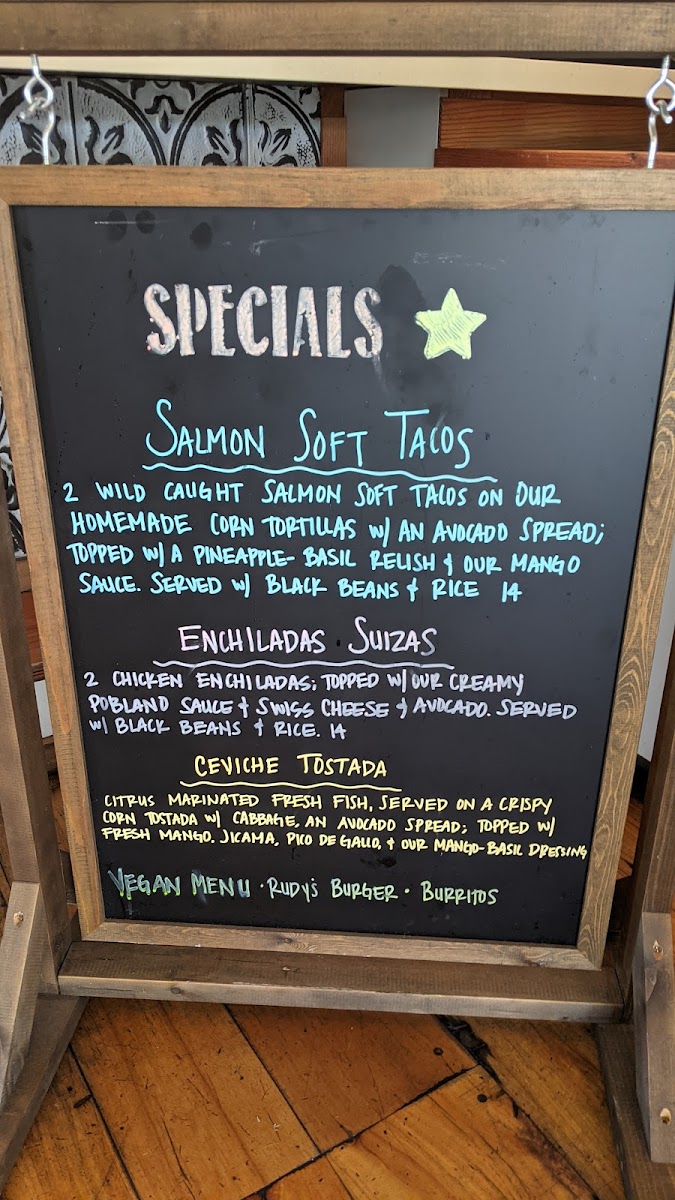 SPECIALS
SALMON SOFT TACOS
2 WILD CAUGHT SALMON SOFT TACOS ON OUR
HOMEMADE CORN TORTILLAS W/ AN AVOCADO SPREAD;
TOPPED W/ A PINEAPPLE-BASIL RELISH & OUR MANGO
SAUCE. SERVED W/ BLACK BEANS & RICE 14
ENCHILADAS SUIZAS
2 CHICKEN ENCHILADAS; TOPPED W/ OUR CREAMY
POBLANO SAUCE & SWISS CHEESE & AVOCADO. SERVED
W/ BLACK BEANS & RICE. 14
CEVICHE TOSTADA
CITRUS MARINATED FRESH FISH, SERVED ON A CRISPY
CORN TOSTADA W/ CABBAGE, AN AVOCADO SPREAD; TOPPED W/
FRESH MANGO, JICAMA, PICO DE GALLO, & OUR MANGO-BASIL DRESSING
VEGAN MENU · RUDY'S BURGER · BURRITOS